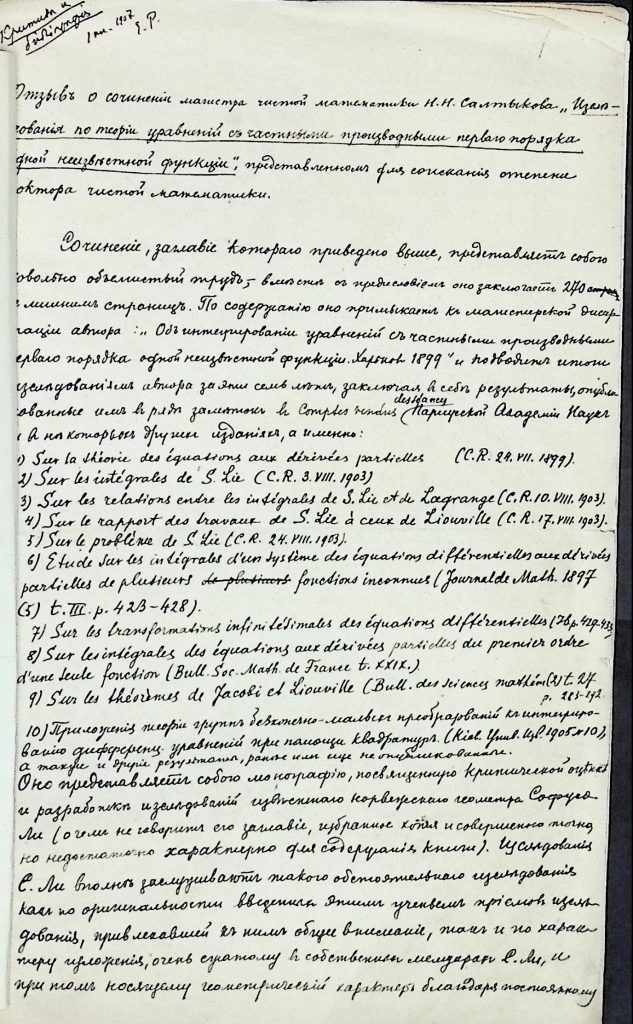 Критика и
библиография
1907 Е. Р.
Отзывъ о сочиненіи магистра чистой математики Н. Н. Салтыкова „Изслѣ-
дованія по теоріи уравненій съ частными производными перваго порядка
одной неизвѣстной функціи", представленномъ для соисканія степени
доктора чистой математики.
Сочиненіе, заглавіе котораго приведено выше, представляетъ собою
довольно объемистый трудъ, вмѣстѣ съ предисловіемъ оно заключаетъ 270
лишнимъ страницъ. По содержанію оно примыкаетъ къ магистерской диссер-
таціи автора: „Объ интегрированіи уравненій съ частными производными
перваго порядка одной неизвѣстной функціи. Харьковъ 1899" и подводитъ итоги
изслѣдованіямъ автора за эти семь лѣтъ, заключая въ себѣ результаты, опубли-
кованные имъ въ рядѣ замѣтокъ въ Comptes rendus des séances Парижской Академіи Наукъ
и въ нѣкоторыхъ другихъ изданіяхъ, а именно:
1) Sur la théorie des équations aux dérivées partielles (C.R. 24. VII. 1899).
2) Sur les intégrales de S. Lie (C.R. 3. VIII. 1903)
3) Sur les relations entre les intégrales de S. Lie et de Lagrange (C.R. 10. VIII. 1903).
4) Sur le rapport des travaux de S. Lie à ceux de Liouville (C.R. 17. VIII. 1903).
5) Sur le problème de S. Lie (C.R. 24. VIII. 1903).
6) Etude sur les intégrales d'un système des équations différentielles aux dérivées
partielles de plusieurs de plusieurs fonctions inconnues (Journal de Math. 1897
(5) t. III. p. 423–428).
7) Sur les transformations infinitésimales des équations différentielles (Ib. p. 429-435)
8) Sur les intégrales des équations aux dérivées partielles du premier ordre
d'une seule fonction (Bull. Soc. Math. de France t. XXIX.)
9) Sur les théorèmes de Jacobi et Liouville (Bull. des sciences mathém. (2) t. 27
p. 283-292
10) Приложенія теоріи группъ безконечно-малыхъ преобразованій къ интегриро-
ванію дифференц. уравненій при помощи квадратуръ. (Кіев. Унив. Изв. 1905 № 10),
а также и другіе результаты, ранѣе имъ еще не опубликованные.
Оно представляетъ собою монографію, посвященную критической оцѣнкѣ
и разработкѣ изслѣдованій извѣстнаго норвежскаго геометра Софуса
Ли (о чемъ не говоритъ его заглавіе, избранное хотя и совершенно точно
но недостаточно характерно для содержанія книги). Изслѣдованія
С. Ли вполнѣ заслуживаютъ такого обстоятельнаго изслѣдованія
какъ по оригинальности введенныхъ этимъ ученымъ пріемовъ изслѣ-
дованія, привлекавшей къ нимъ общее вниманіе, такъ и по харак-
теру изложенія, очень сжатому въ собственныхъ мемуарахъ С. Ли, и
при томъ носящему геометрическій характеръ благодаря постоянному